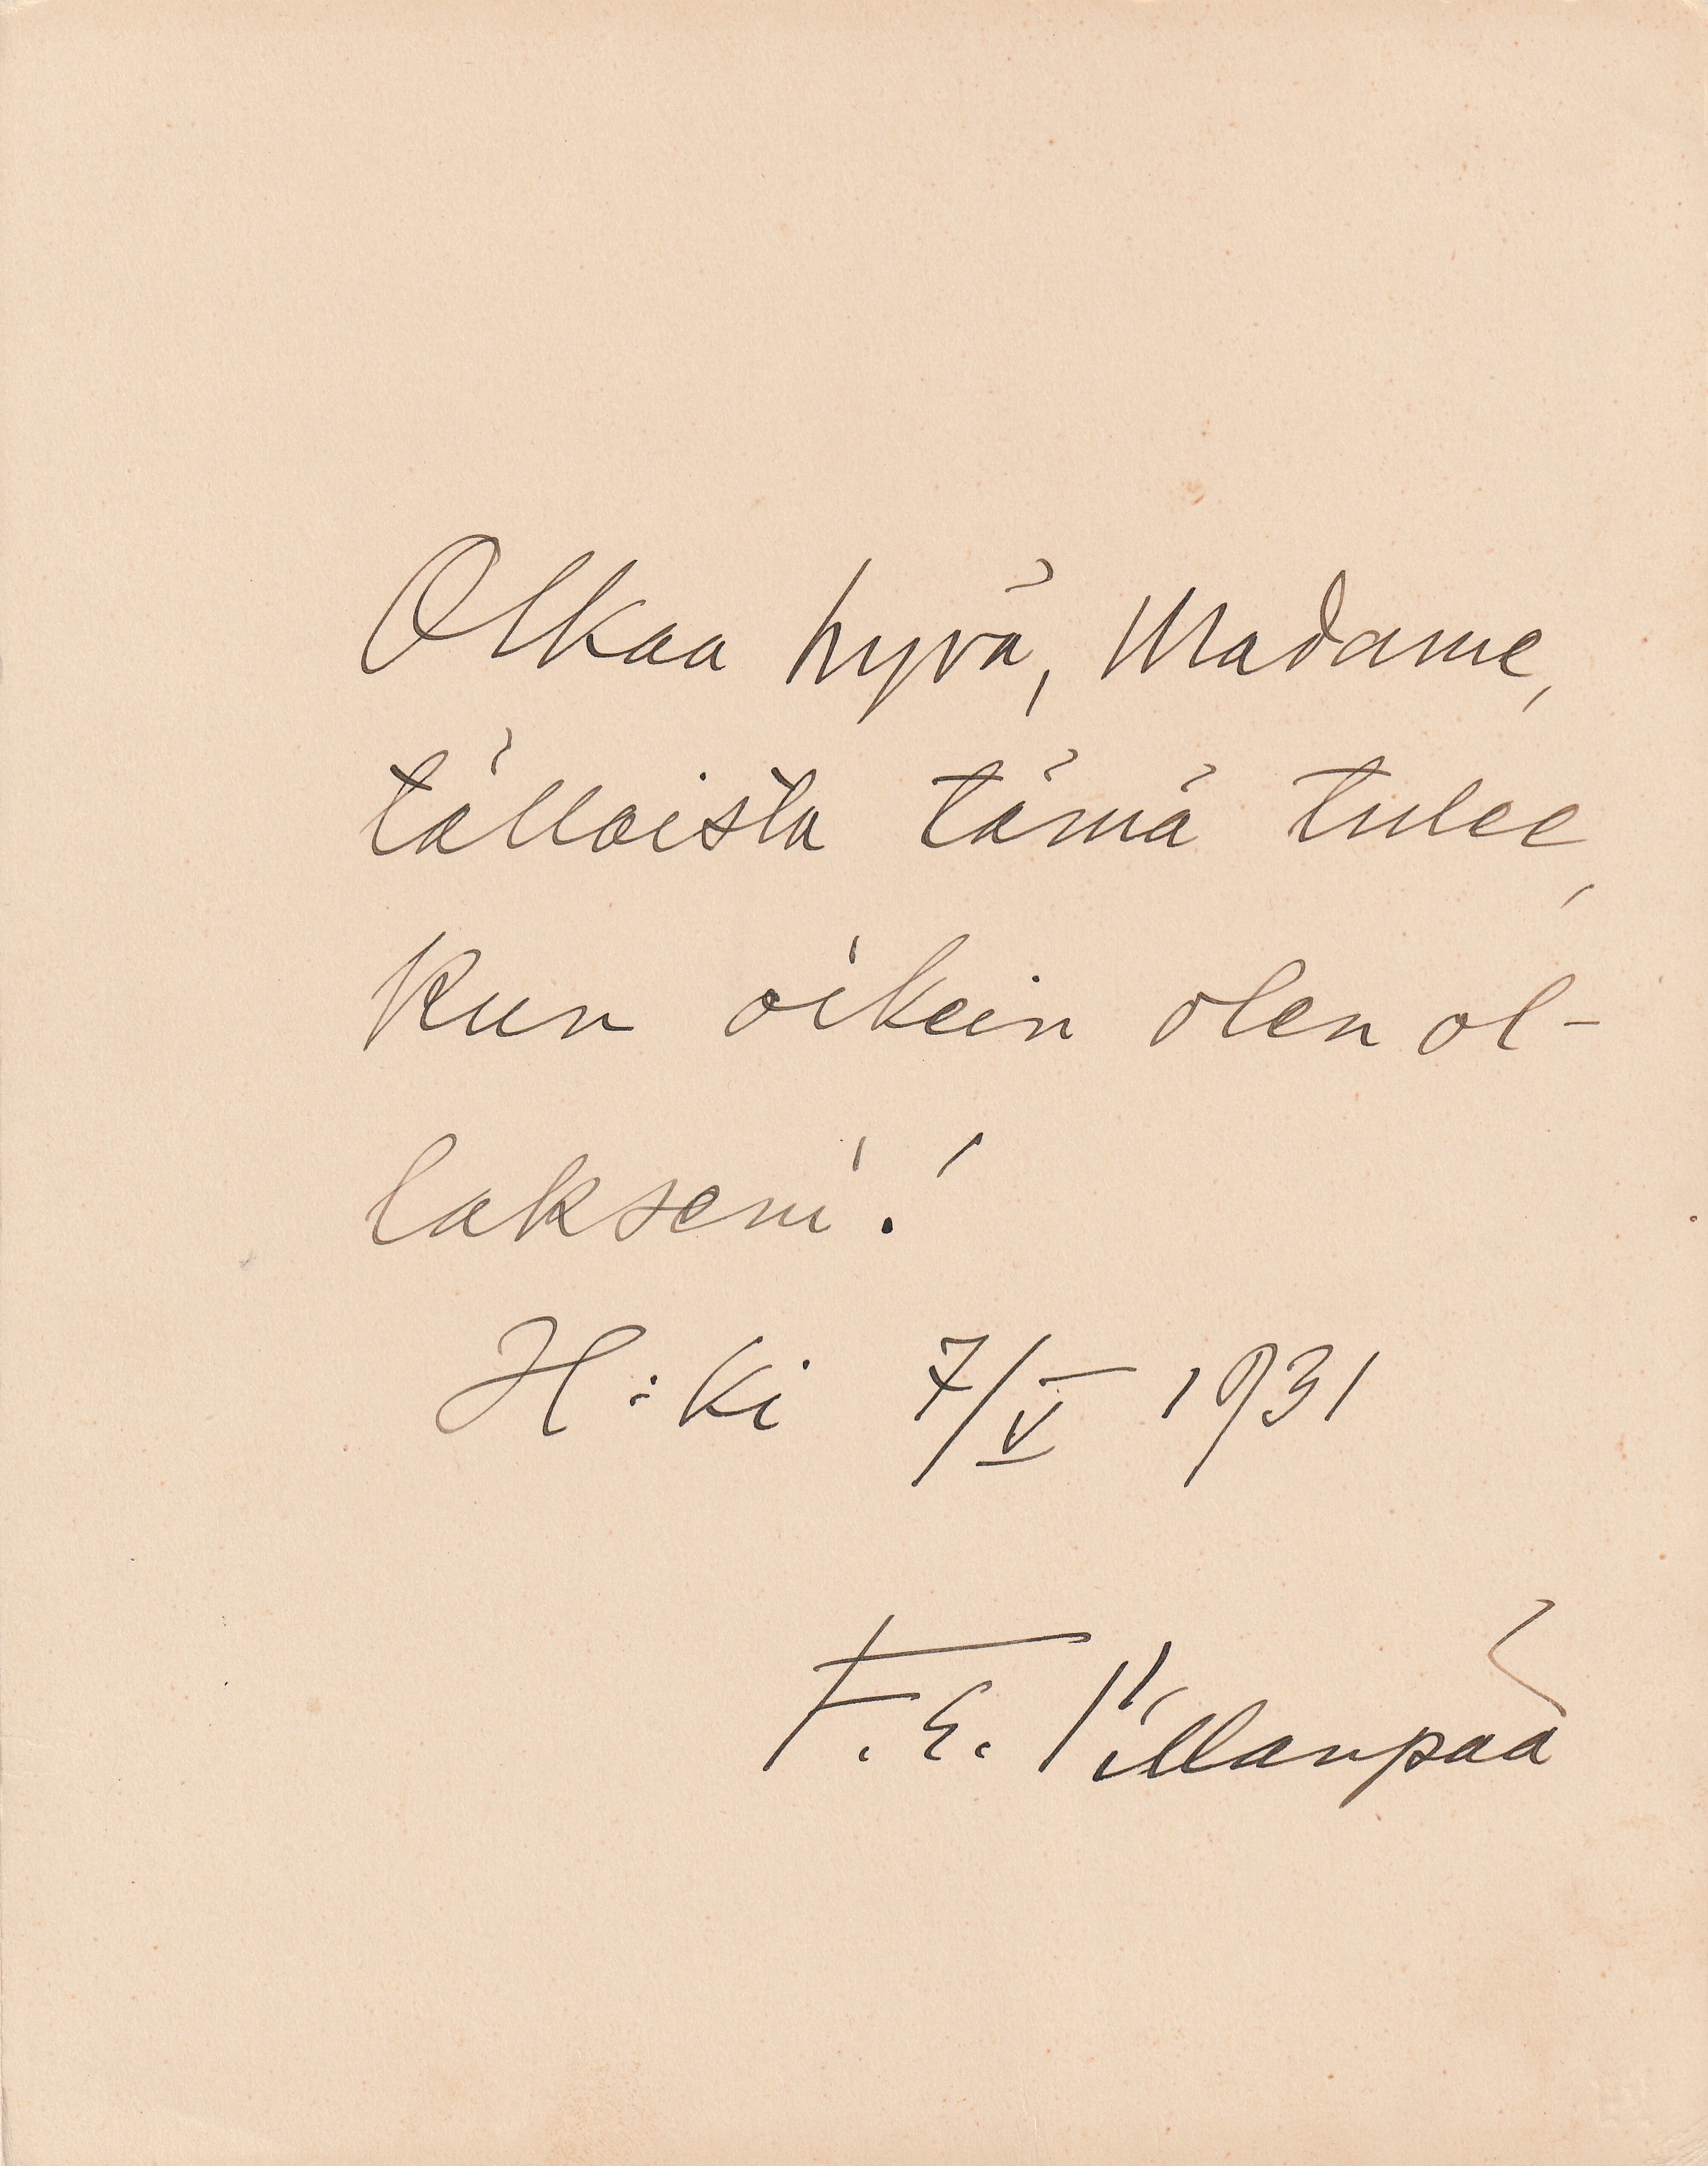 Olkaa hyvä, Madame,
tälloista tämä tulee,
kun oikein olen ol-
lakseni!
H:ki 7/V 1931
F. E. Sillanpää